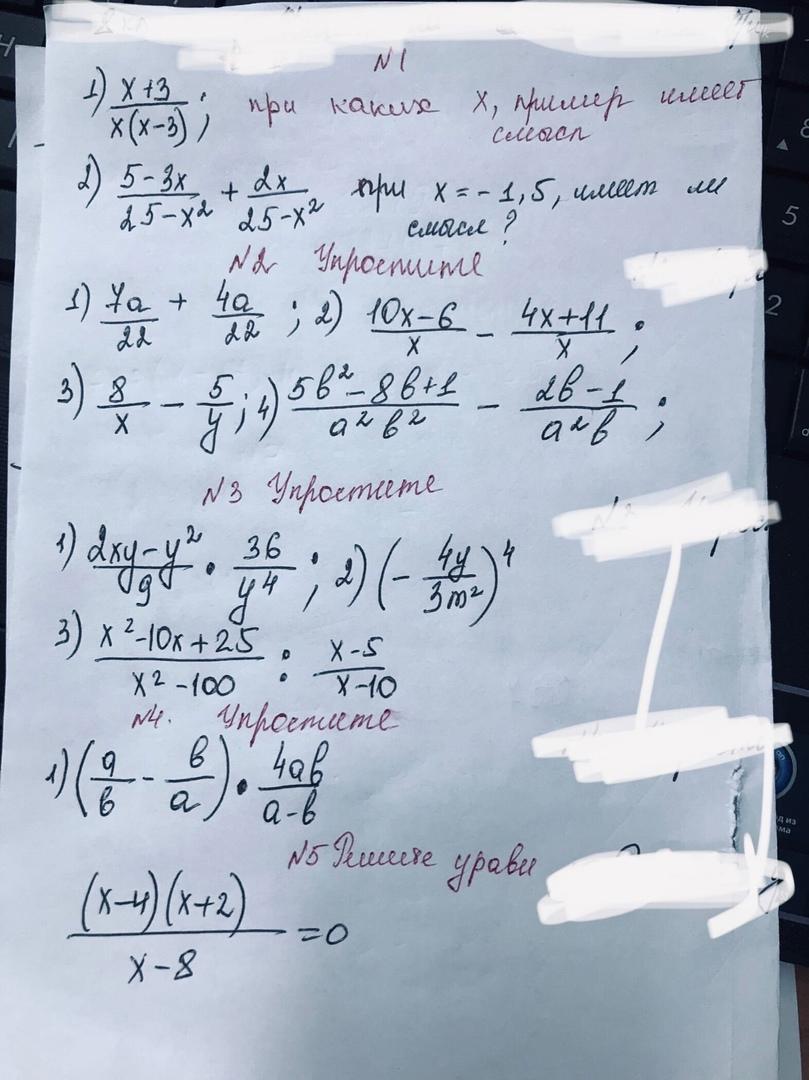 N1
1) (x+3)/(x(x-3)); при каких x, пример имеет
смысл
2) (5-3x)/(25-x²) + 2x/(25-x²) при x = -1,5, имеет ли
смысл?
N2 Упростите
1) 7a/22 + 4a/22; 2) (10x-6)/x - (4x+11)/x;
3) 8/x - 5/y; 4) (5b²-8b+1)/(a²b²) - (2b-1)/(a²b);
N3 Упростите
1) (2xy-y²)/9 · 36/y⁴; 2) (-4y/(3m²))⁴
3) (x²-10x+25)/(x²-100) : (x-5)/(x-10)
N4. Упростите
1) (a/b - b/a) · 4ab/(a-b)
N5 Решите уравн
((x-4)(x+2))/(x-8) = 0